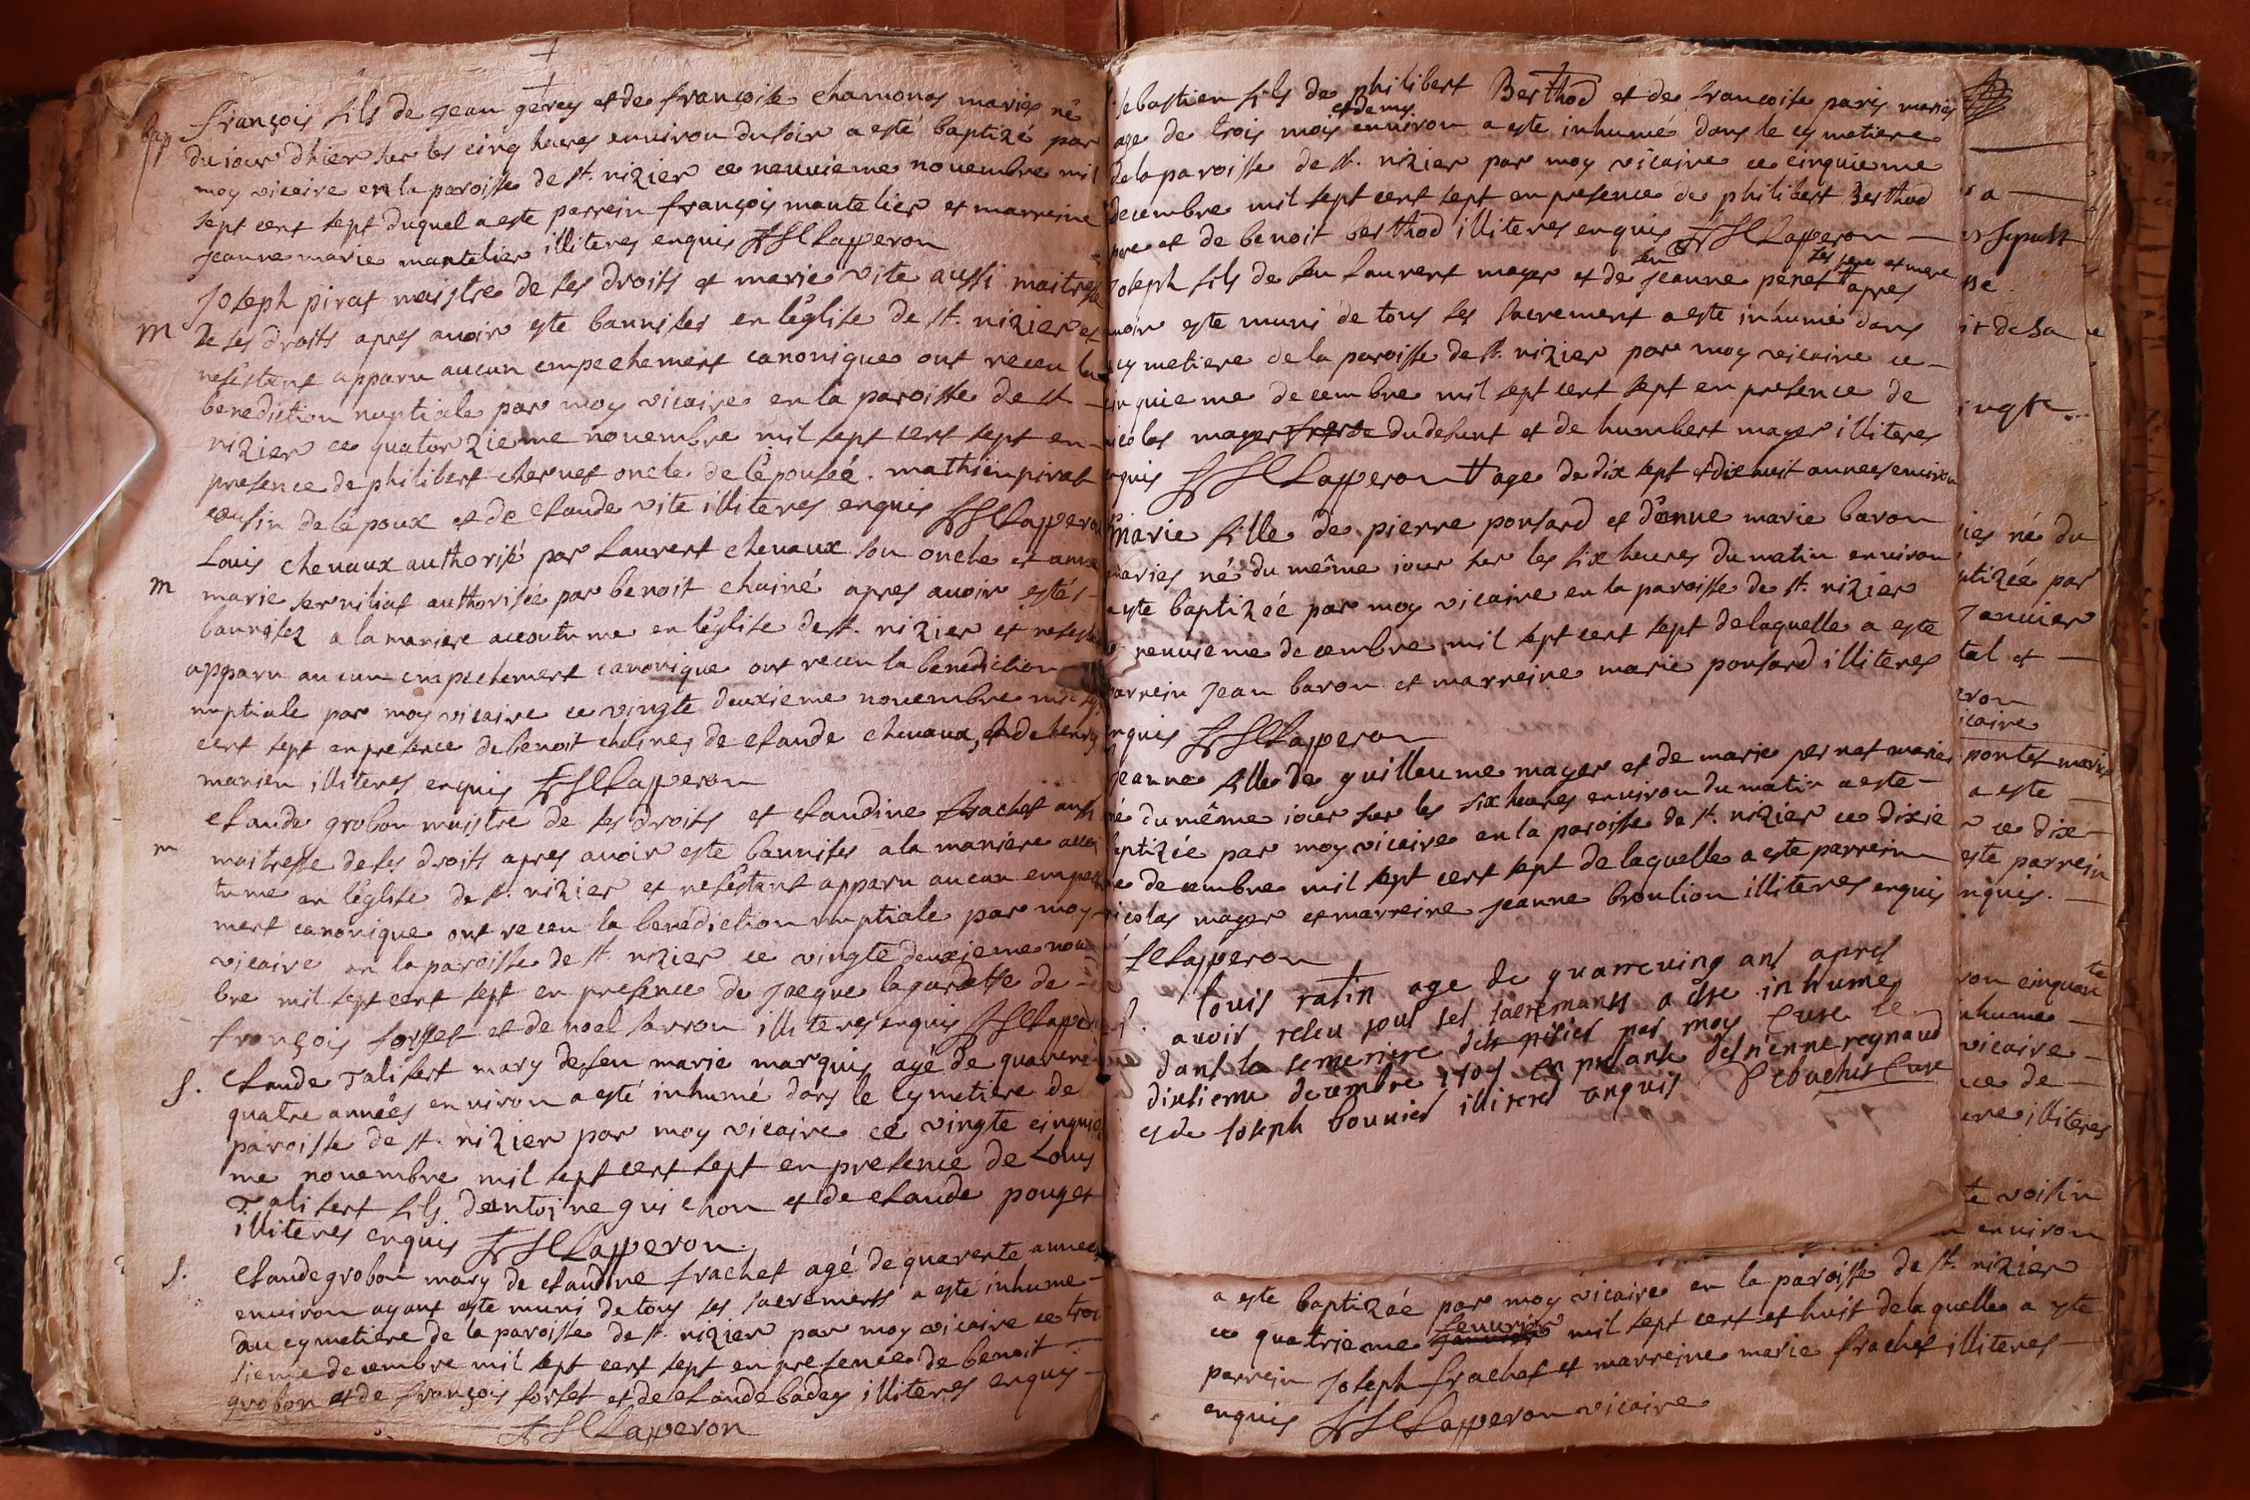 bap françois fils de Jean gerey et de françoise chamonay mariés né
du iour dhier sur les cinq heures environ du soir a esté baptizé par
moy vicaire en la paroisse de st. nizier ce neuuieme nouembre mil
sept cent sept duquel a este parrein françois mantelier et marreine
Jeanne marie mantelier illiteres enquis Lapperon
m Joseph pirat maistre de ses droits et marie vite aussi maitresse
de ses droits apres auoir este bannises en leglise de st. nizier et
nesestant apparu aucun empechement canonique ont receu la
benediction nuptiale par moy vicaire en la paroisse de st
nizier ce quatorzieme nouembre mil sept cent sept en
presence de philibert chernet oncle de lépouseé. mathieu pirat
cousin de lépoux et de Claude vite illiteres enquis Lapperon
m Louis cheuaux authorisé par Laurent cheuaux son oncle et anne
marie serniliat authorisée par benoit chainé apres auoir estés
bannisez a la maniere accoutume en leglise de st. nizier et
apparu aucun empechement canonique ont receu la benediction
nuptiale par moy vicaire ce vingte deuxieme nouembre mil
cent sept en presence de benoit chaines de Claude cheuaux, et de henry
manien illiteres enquis Lapperon
m Claude grobon maistre de ses droits et Claudine frachet aussi
maitresse de ses droits apres auoir este bannises a la maniere accou
tume en leglise de st. nizier et nesestant apparu aucun empeche
ment canonique ont receu la benediction nuptiale par moy
vicaire en la paroisse de st nizier ce vingte deuxieme nouem
bre mil sept cent sept en presence de Jacque lagardette de
françois forset et de noel sarron illiteres enquis Lapperon
s. Claude Talisert mary de feu marie marquis agé de quarente
quatre années environ a esté inhumé dans le cymetiere de
paroisse de st. nizier par moy vicaire ce vingte cinquie
me nouembre mil sept cent sept en presence de Louis
Talisert fils dantoine guichon et de Claude pouget
illiteres enquis Lapperon.
s. Claude grobon mary de Claudine frachet agé de quarente années
environ ayant este muni de tous ses sacrements a este inhume
au cymetiere de la paroisse de st. nizier par moy vicaire ce troi
sieme decembre mil sept cent sept en presence de benoit
grobon et de françois forset et de Claude badey illiteres enquis
Lapperon
sebastien fils de philibert Berthod et de francoise paris mariés
et demy
age de trois mois environ a este inhumé dans le cymetiere
de la paroisse de st. nizier par moy vicaire ce cinquieme
decembre mil sept cent sept en presence de philibert Berthod
pere et de benoit berthod illiteres enquis Lapperon
feu ses pere et mere
Joseph fils de feu Laurent mager et de Jeanne penet apres
auoir este muni de tous ses sacrement a este inhumé dans
cymetiere de la paroisse de st. nizier par moy vicaire ce
cinquieme decembre mil sept cent sept en presence de
nicolas mager frere du defunt et de humbert mager illiteres
enquis Lapperon age de dix sept et dix huit annees environ
Marie fille de pierre ponsard et danne marie baron
mariés né du même iour sur les six heures du matin environ
a este baptizée par moy vicaire en la paroisse de st. nizier
neuuieme decembre mil sept cent sept de laquelle a este
parrein Jean baron et marreine marie ponsard illiteres
enquis Lapperon
Jeanne fille de guilleume mager et de marie pernet mariés
né du même iour sur les six heures environ du matin a este
baptizée par moy vicaire en la paroisse de st. nizier ce dixie
me decembre mil sept cent sept de laquelle a este parrein
nicolas mager et marreine Jeanne broulion illiteres enquis
Lapperon
s. Louis ratin age de quatreuing ans apres
auoir reseu tous ses sacremants a este inhumes
dans la semetiere de st nisies par moy Cure ce
dixiemu decembre 1707 en presans destienne reynaud
et de Joseph bouuies illiteres enquis Cure
a
sepult
et de sa
né du
baptizée par
Januier
tal et
vicaire
pontet mariés
a este
ce dix
este parrein
enquis.
environ cinquante
inhume
vicaire
de
illiteres
voisin
environ
a este baptizée par moy vicaire en la paroisse de st. nizier
feurier
ce quatrieme mil sept cent et huit de la quelle a este
parrein Joseph frachet et marreine marie frachet illiteres
enquis Lapperon vicaire